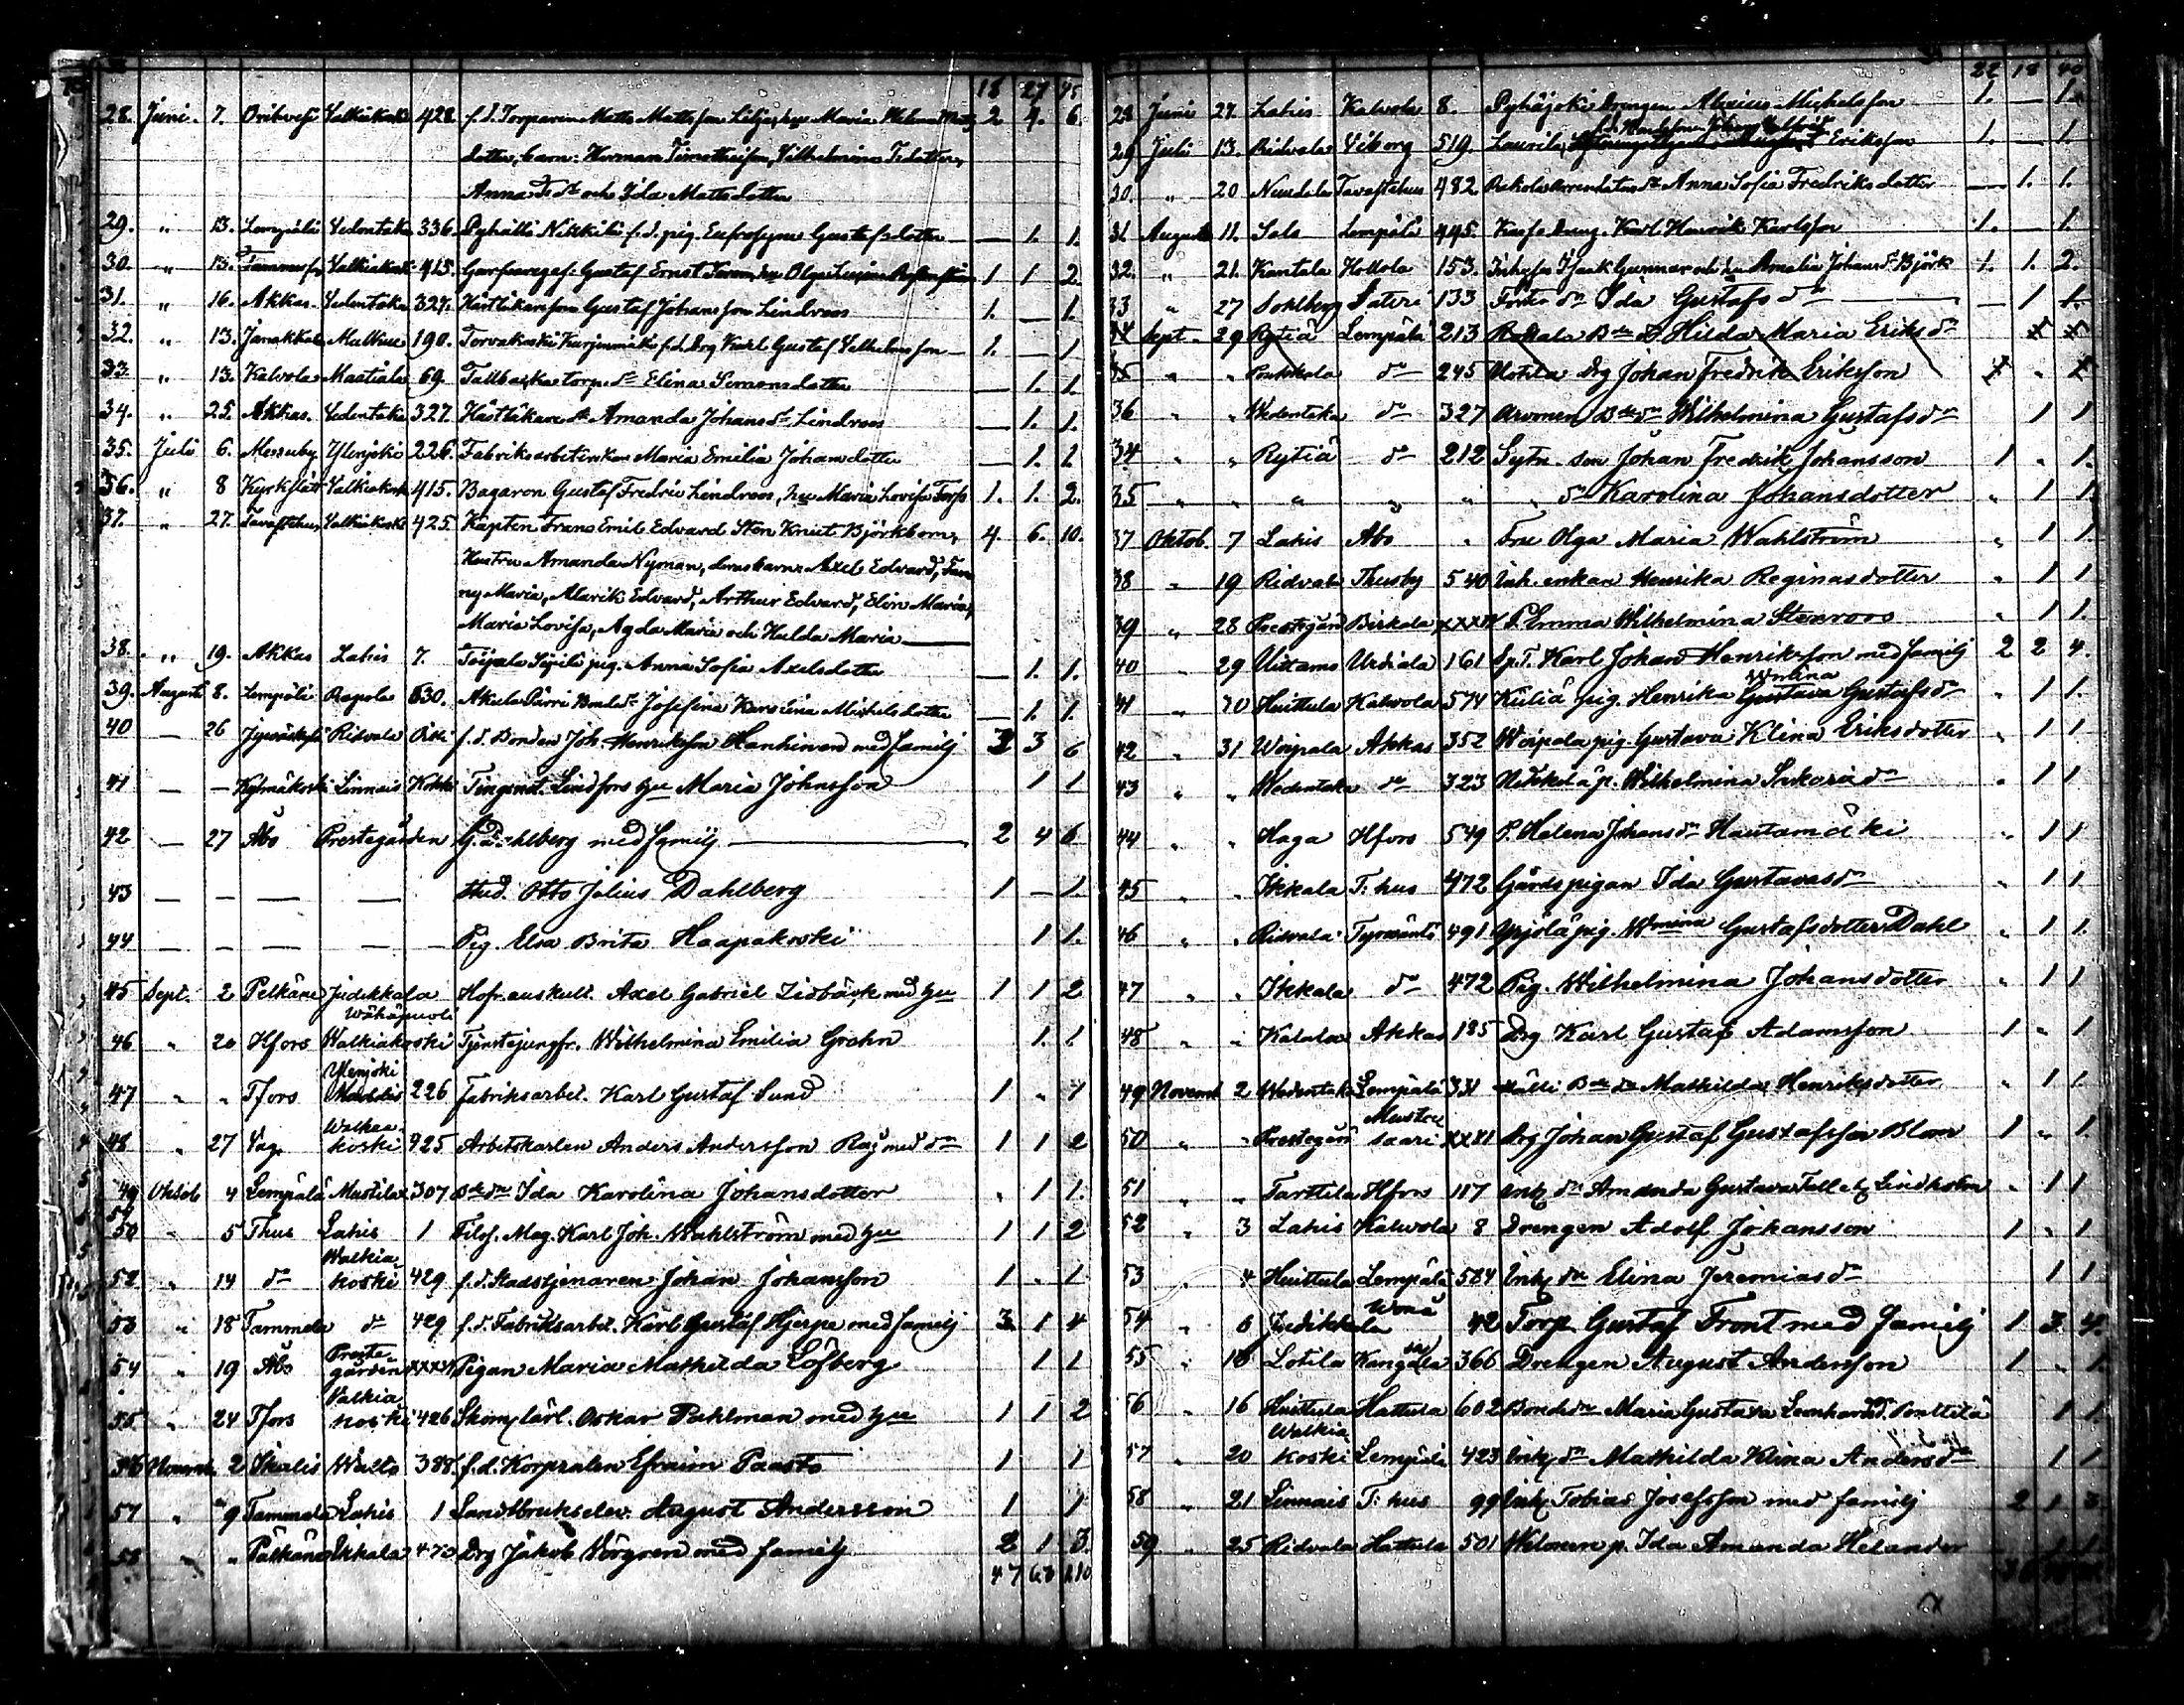 18 27 45
28. Juni. 7. Orihvesi Valkiakoski 428. f.d. Torparen Matts Mattsson Lilja, hu Maria Helena Matts 2 4. 6.
dotter, barn: Herman Timotheison, Vilhelmina T.dotter,
Anna T. dr och Ida Mattsdotter
29. " 13. Lempälä Vedentaka 336. Pyhälti Nikkilä f.d. pig. Eufrosyne Gustafsdotter — 1. 1.
30. " 13. Tammerfors Valkiakoski 415. Garfvaregес. Gustaf Ernst 1 1 2.
31. " 16. Akkas. Vedentaka 327. Hästläkareson Gustaf Johansson Lindroos 1. — 1.
32. " 13. Janakkala Mälkiä 190. f.d. Drg Karl Gustaf Vilhelmsson 1. — 1
33. " 13. Kalvola Maatiala 69. Tallbacka torp. dr Elina Simonsdotter — 1. 1.
34. " 25. Akkas. Vedentaka 327. Hästläkare dr Amanda Johans dr Lindroos — 1. 1.
35. Juli 6. Messuby Ylenjoki 226. Fabriksarbeterskan Maria Emilia Johansdotter — 1. 1
36. " 8 Kyrkslätt Valkiakoski 415. Bagaren Gustaf Fredric Lindroos, hu Maria Lovisa Forss 1. 1. 2.
37. " 27. Tavastehus Valkiakoski 425. Kapten Frans Emil Edvard Sten Knut Björkbom, 4. 6. 10.
Hustru Amanda Nyman, deras barn: Axel Edvard, Fan
ny Maria, Alarik Edvard, Arthur Edvard, Elin Maria,
Maria Lovisa, Agda Maria och Hulda Maria
38. " 19. Akkas Lahis 7. pig. Anna Sofia Axelsdotter — 1. 1.
39. Augusti 8. Lempälä Rapola 630. Akula Pärri Bonde dr Josefina Karolina Michelsdotter — 1. 1.
40 — 26 Jyväskylä Ridvala f.d. Bonden Joh. Henriksson Hankinen med familj 3 3 6
41 — — Kylmäkoski Linnais Maria Johnsson 1 1
42 — 27 Åbo Prestegården G. Dahlberg med familj 2 4 6
43 — — — — Stud. Otto Julius Dahlberg 1 — 1.
44 — — — — — Pig. Elsa Brita Haapakoski 1 1.
45 Sept. 2 Pelkäne Judikkala Hofr. auskult. Axel Gabriel Lidbäck med hu 1 1 2
46 " 20 Hfors Walkiakoski Tjenstejungfr. Wilhelmina Emilia Grahn 1. 1
Ylenjoki
47 " " Tfors 226 Fabriksarbet. Karl Gustaf Sund 1 " 1
Walkia
48 " 27 koski 425 Arbetskarlen Anders Andersson med dr 1 1 2
49 Oktob 4 Lempälä Mustila 307 Bde dr Ida Karolina Johansdotter " 1 1.
50 " 5 Thus Lahis 1 Filos. Mag. Karl Joh. Wahlström med hu 1 1 2
Walkia
52 " 14 dr koski 429 f.d. Stadstjenaren Johan Johansson 1 " 1
53 " 18 Tammela dr 429 f.d. Fabriksarbet. Karl Gustaf Hjerpe med familj 3 1 4
Preste
54 " 19 Åbo gården XXXI Pigan Maria Mathilda Löfberg 1 1
Valkia
55 " 24 Tfors koski 426 Oskar Pahlman med hu 1 1 2
56 Novemb. 2 Walto 388 f.d. Korpralen Efraim Paasto 1 1
57 " 9 Tammela Lahis 1 Landtbrukselev. August Andersson 1 1
58 " " Pälkäne Ikkala 470 Drg Jakob med familj 2 1 3.
47 63 110

22 18 40
28 Juni 27. Lahis Kalvola 8. Pyhäjoki drengen Alexius Michelsson 1. — 1.
29 Juli 13. Ridvala Viborg 519. Laurila Eriksson 1. — 1.
30. " 20 Tavastehus 482. dr Anna Sofia Fredriksdotter — 1. 1.
31 Augusti 11. Sala Lempälä 445. Karl Henrik Karlsson 1. — 1.
32. " 21. Kantala Hollola 153. Inhyses Isaak Gunnar och hu Amalia Johans dr Björk 1. 1. 2.
33 " 27 Sohlberg Säteri 133 dr Ida Gustafs dr — 1 1.
34 Sept. 29 Rytiä Lempälä 213 Bde dr Hilda Maria Eriks dr
35 " " dr 245 Drg Johan Fredrik Eriksson
36 " " Wedentaka dr 327 Arvonen Bde dr Wilhelmina Gustafs dr 1 1
34 " " Rytiä dr 212 Sytn. son Johan Fredrik Johansson 1 " 1.
35 " " " " " " dr Karolina Johansdotter " 1 1
37 Oktob. 7 Lahis Åbo " Fru Olga Maria Wahlström " 1 1
38 " 19 Ridvala Thusby 540 Inh. enkan Henrika Reginasdotter " 1 1
39 " 28 Prestegård Birkala P. Emma Wilhelmina Stenroos " 1 1.
40 29 Uittamo Urdiala 161 Karl Johan Henriksson med familj 2 2 4.
Wmlina
41 " 30 Huittula Kalvola 574 Kuliä pig. Henrika Gustava Gustafs dr " 1 1.
42 " 31 Woipala Akkas 352 Woipala pig. Gustava Klina Eriksdotter " 1 1
43 " " Wedentaka dr 323 Nikkilä p. Wilhelmina Sakaria dr " 1 1
44 " " Haga Hfors 549 P. Helena Johans dr Hautamäki " 1 1
45 " Ikkala T:hus 472 Gårds pigan Ida Gustavas dr " 1 1
46 " " Ridvala Tyrväntö 491 Yrjölä pig. Wmina Gustafsdotter Dahl " 1 1.
47 " " Ikkala dr 472 Pig. Wilhelmina Johansdotter " 1 1
48 " " Akkas 185 Drg Karl Gustaf Adamsson 1 " 1
49 Novemb 2 Wedentaka Lempälä 331 Bde dr Mathilda Henriksdotter " 1 1
Mustia
50 " " Prestegård saari XXXI Drg Johan Gustaf Gustafsson Blom 1 " 1.
51 " " Tarttila Hfors 117 Inh dr Amanda Gustava Lindholm " 1 1
52 " 3 Lahis Kalvola 8 Drengen Adolf Johansson 1 " 1
53 " 4 Huittula Lempälä 584 Inh dr Elina Jeremias dr 1 1
54 " 6 Judikkala 42 Torp. Gustaf Front med familj 1 3 4.
55 " 16 Lotila Kangasala 366 Drengen August Andersson 1 " 1
56 " 16 Huittula Hattula 602 Bonde dr Maria Gustava Leonhards d. Penttilä 1 1
Walkia
57 " 20 koski Lempälä 423 Inh dr Mathilda Klina Anders dr 1 1
58 " 21 Linnais T:hus 99 Inh Tobias Josefsson med familj 2 1 3
59 " 25 Ridvala Hattula 501 p. Ida Amanda Helander